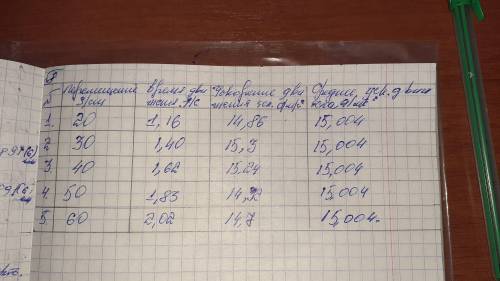 Перемещение Время дви Ускорение дви Среднее уск. движ
S/см жения t/c жения
1. 20 1,16 14,86 15,004
2 30 1,40 15,3 15,004
3. 40 1,62 15,24 15,004
4. 50 1,83 15,004
5. 60 2,02 14,7 15,004.